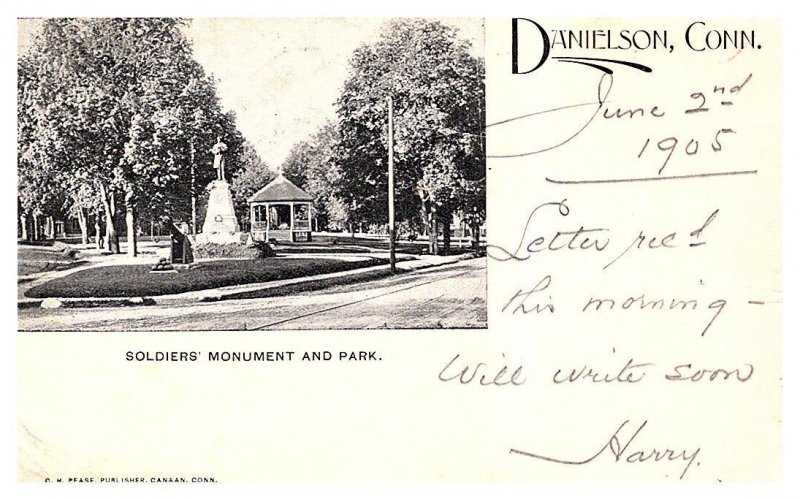 DANIELSON, CONN.
June 2nd
1905
Letter rec'd
this morning -
Will write soon
Harry.
SOLDIERS' MONUMENT AND PARK.
C. H. PEASE, PUBLISHER, CANAAN, CONN.